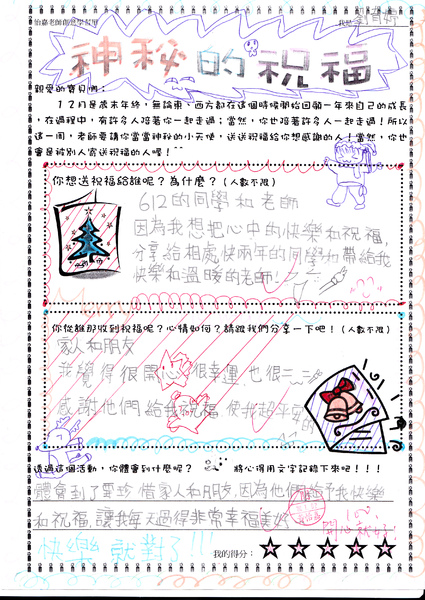 怡嘉老師創意學習單
我是
神秘的祝福
親愛的寶貝們：
１２月是歲末年終，無論東、西方都在這個時候開始回顧一年來自己的成長，
在過程中，有許多人陪著你一起走過；當然，你也陪著許多人一起走過！所以
這一周，老師要請你當當神秘的小天使，送送祝福給你想感謝的人！當然，你也
會是被別人寄送祝福的人喔！^^
你想送祝福給誰呢？為什麼？（人數不限）
612的同學和老師
因為我想把心中的快樂和祝福，
分享給相處快兩年的同學和帶給我
快樂和溫暖的老師！
你從誰那收到祝福呢？心情如何？請跟我們分享一下吧！（人數不限）
家人和朋友
我覺得很開心 很幸運 也很
感謝他們給我祝福 使我
透過這個活動，你體會到什麼呢？ 將心得用文字記錄下來吧！！！
體會到了要珍惜家人和朋友，因為他們給予我快樂
和祝福，讓我每天過得非常幸福美妙
開心就好！
快樂就對了!!!
我的得分：☆☆☆☆☆